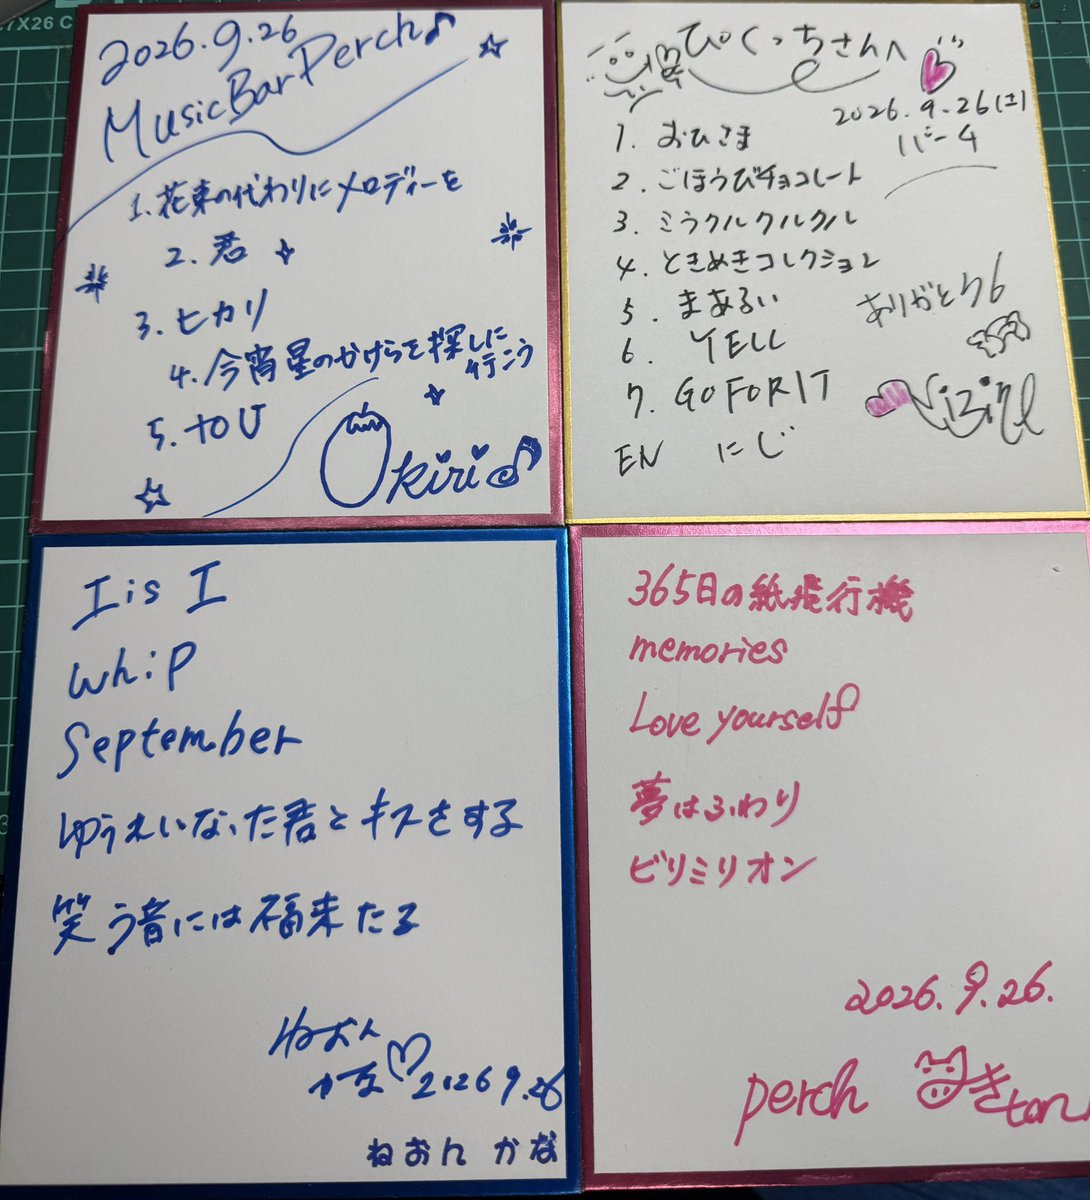 2026.9.26
Music Bar Perch
1. 花束の代わりにメロディーを
2. 君
3. ヒカリ
4. 今宵星のかけらを探しに
行こう
5. to U
Okiri
ぴくっちさんへ
2026.9.26(土)
パーチ
1. おひさま
2. ごほうびチョコレート
3. ミラクルクルクル
4. ときめきコレクション
5. まあるい
6. YELL
7. GO FOR IT
EN にじ
ありがとう
I is I
whip
September
ゆうれいなった君とキスをする
笑う音には福来たる
ねおん
かな
2026 9.26
ねおん かな
365日の紙飛行機
memories
Love yourself
夢はふわり
ビリミリオン
2026.9.26.
perch
きton